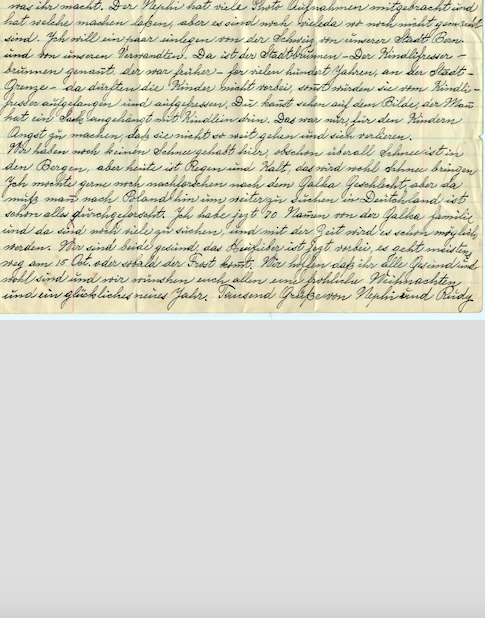 was ihr macht. Der Nephi hat viele Photo Aufnahmen mitgebracht und
hat welche machen laßen, aber es sind noch viele da wo noch nicht gemacht
sind. Ich will ein paar einlegen von der Schweiz von unserer Stadt Bern
und von unseren Verwandten. Da ist der Stadtbrunen - Der Kindlifresser-
brunnen genant, der war früher - for vielen hundert Jahren, an der Stadt-
Grenze - da dürften die Kinder nicht vorbei, sonst würden sie vom Kindli-
fresser aufgefangen und aufgefressen, Du kanst sehen auf dem Bilde, der Man
hat ein Sak angehängt mit Kindlein drin. Das war nur, für den Kindern
Angst zu machen, daß sie nicht so weit gehen und sich verlieren.
Wir haben noch keinen Schnee gehabt hier, obschon überall Schnee ist in
den Bergen, aber heute ist Regen und Kalt, das wird wohl Schnee bringen
Ich möchte gerne noch nachforschen nach dem Galka Geschlecht, aber da
muß man nach Poland hin um weiter zu suchen in Deutchland ist
schon alles durchgeforscht. Ich habe jezt 70 Namen von der Galka familie
und da sind noch viele zu suchen, und mit der Zeit wird es schon möglich
werden. Wir sind beide gesund, das Heufieber ist jezt vorbei, es geht meistens
weg am 15 Oct. oder sobald der Frost komt. Wir hoffen daß ihr alle Gesund und
wohl sind und wir wünshen euch allen eine fröhliche Weihnachten
und ein glückliches neues Jahr. Tausend Grüße von Nephi und Rudy